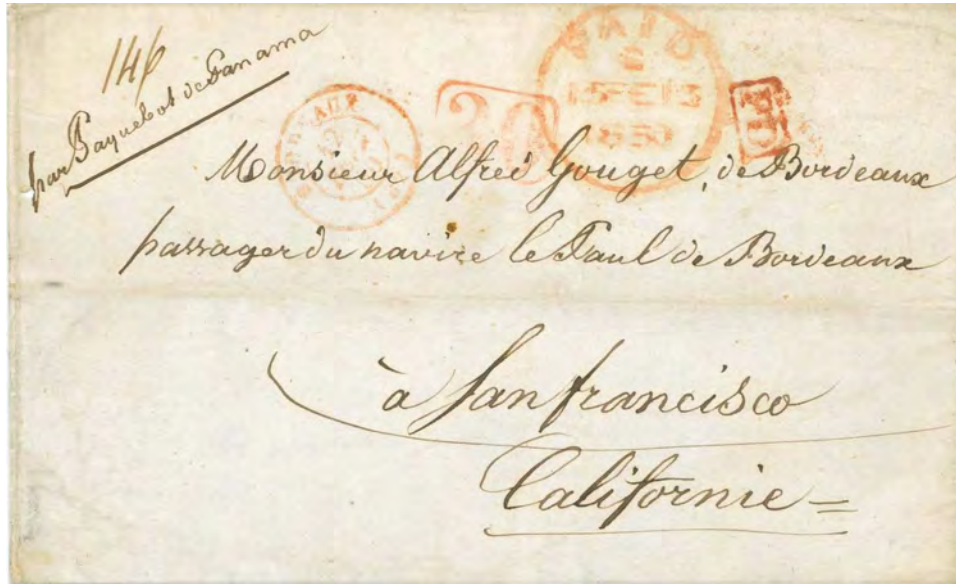 146
par Paquebot de Panama
PAID
13 FE 13
1850
PD
Monsieur Alfred Gouget, de Bordeaux
passager du navire le Paul de Bordeaux
à San francisco
Californie =